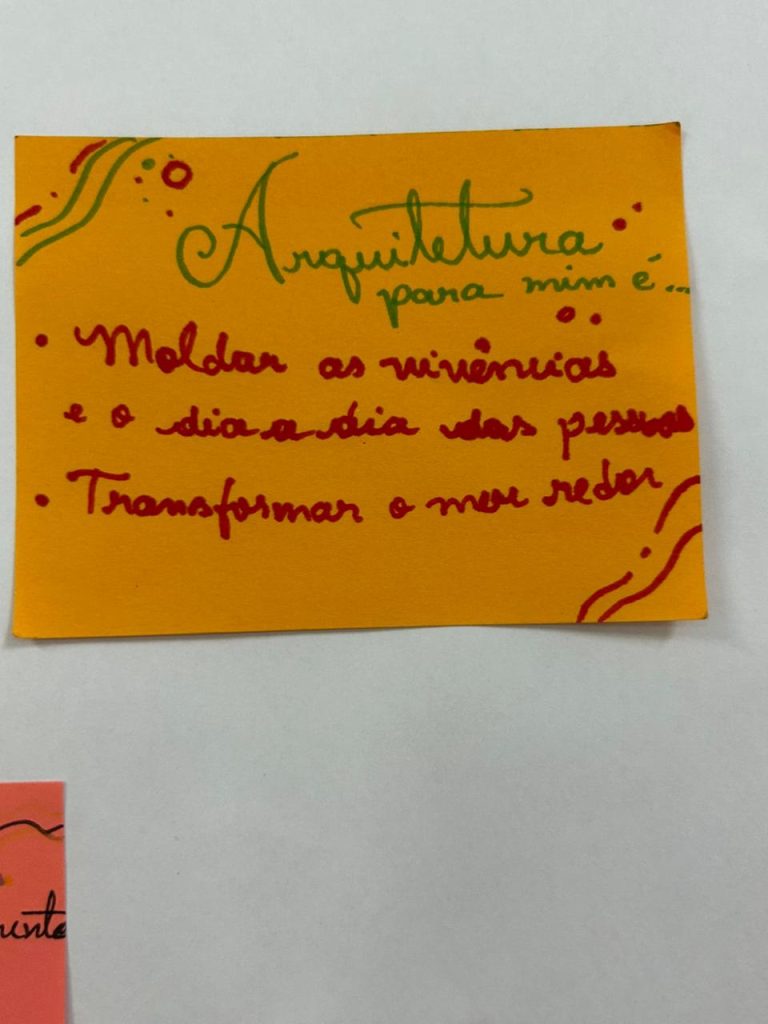 Arquitetura
para mim é...
• Moldar as vivências
e o dia a dia das pessoas
• Transformar o meu redor